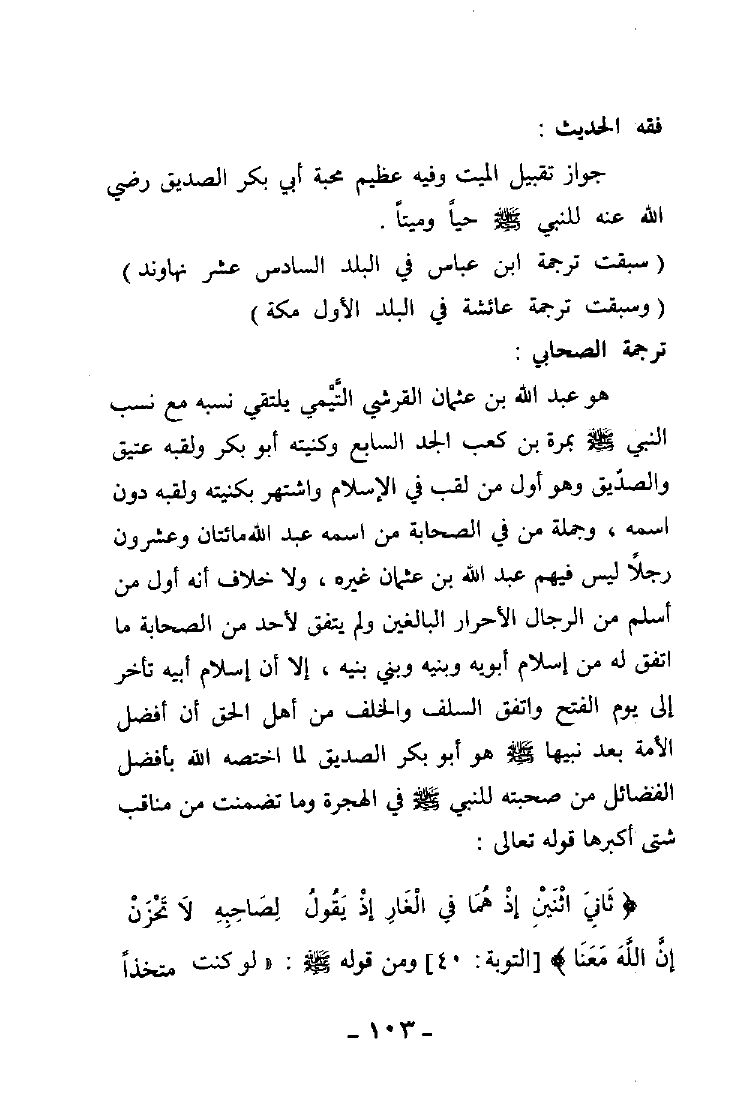 فقه الحديث :
جواز تقبيل الميت وفيه عظيم محبة أبي بكر الصديق رضي
الله عنه للنبي ﷺ حياً وميتاً .
( سبقت ترجمة ابن عباس في البلد السادس عشر نهاوند )
( وسبقت ترجمة عائشة في البلد الأول مكة )
ترجمة الصحابي :
هو عبد الله بن عثمان القرشي التَّيْمي يلتقي نسبه مع نسب
النبي ﷺ بمرة بن كعب الجد السابع وكنيته أبو بكر ولقبه عتيق
والصدّيق وهو أول من لقب في الإسلام واشتهر بكنيته ولقبه دون
اسمه ، وجملة من في الصحابة من اسمه عبد الله مائتان وعشرون
رجلاً ليس فيهم عبد الله بن عثمان غيره ، ولا خلاف أنه أول من
أسلم من الرجال الأحرار البالغين ولم يتفق لأحد من الصحابة ما
اتفق له من إسلام أبويه وبنيه وبني بنيه ، إلا أن إسلام أبيه تأخر
إلى يوم الفتح واتفق السلف والخلف من أهل الحق أن أفضل
الأمة بعد نبيها ﷺ هو أبو بكر الصديق لما اختصه الله بأفضل
الفضائل من صحبته للنبي ﷺ في الهجرة وما تضمنت من مناقب
شتى أكبرها قوله تعالى :
﴿ ثَانِيَ اثْنَيْنِ إِذْ هُمَا في الْغَارِ إِذْ يَقُولُ لِصَاحِبِهِ لَا تَحْزَنْ
إِنَّ اللَّهَ مَعَنَا ﴾ [التوبة: ٤٠] ومن قوله ﷺ : « لو كنت متخذاً
ـ ١٠٣ ـ